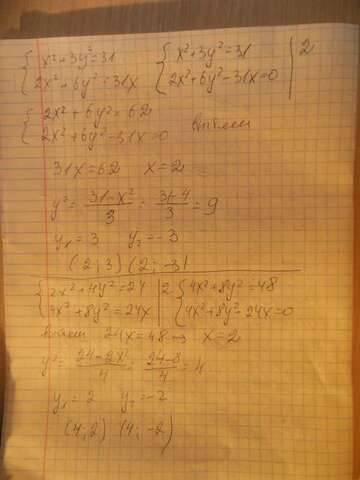 { x²+3y²=31 { x²+3y²=31 | 2
{ 2x²+6y²=31x { 2x²+6y²-31x=0 |
{ 2x²+6y²=62
{ 2x²+6y²-31x=0 вычтем
31x=62 x=2
y²= (31-x²)/3 = (31-4)/3 = 9
y₁=3 y₂=-3
(2;3) (2;-3)
{ 2x²+4y²=24 | 2 { 4x²+8y²=48
{ 4x²+8y²=24x | { 4x²+8y²-24x=0
вычтем 24x=48 → x=2
y²= (24-2x²)/4 = (24-8)/4 = 4
y₁=2 y₂=-2
(4;2) (4;-2)